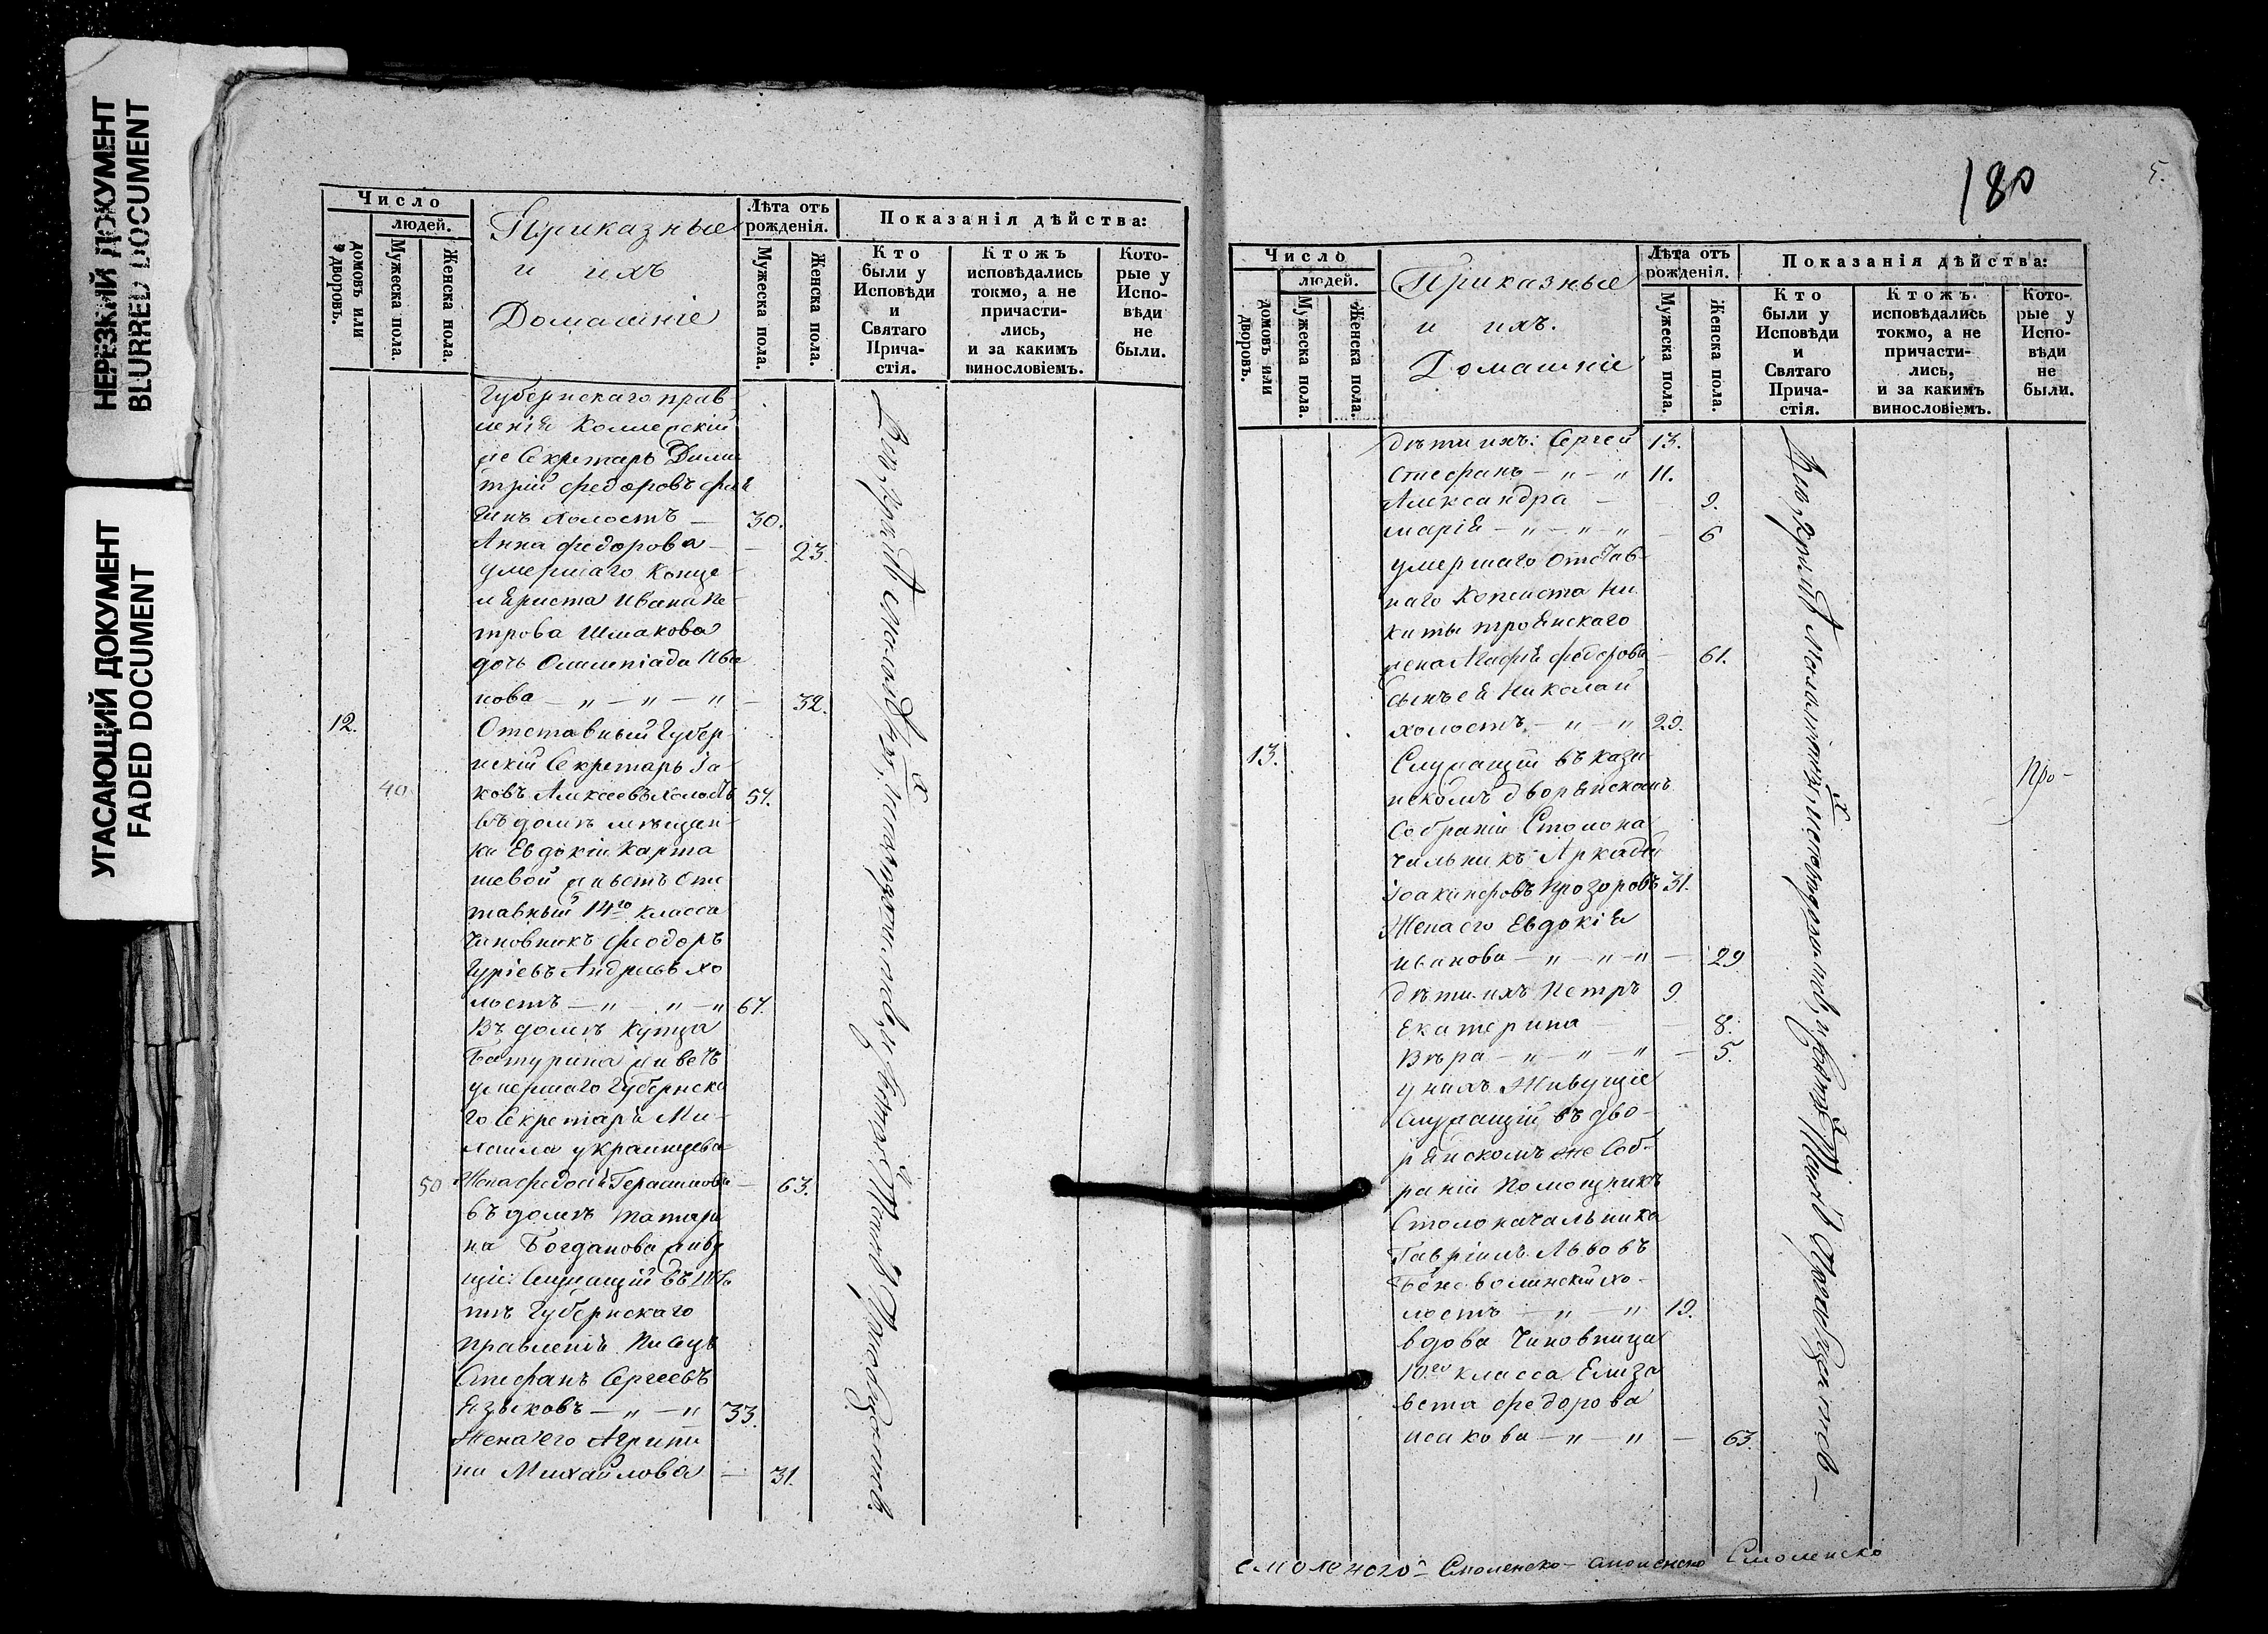 НЕРЕЗКИЙ ДОКУМЕНТ
BLURRED DOCUMENT
УГАСАЮЩИЙ ДОКУМЕНТ
FADED DOCUMENT
Число
людей.
домовъ или дворовъ.
Мужеска пола.
Женска пола.
Приказные
и ихъ
Домашніе
Лѣта отъ рожденія.
Мужеска пола.
Женска пола.
Показанія дѣйства:
Кто были у Исповѣди и Святаго Причастія.
Ктожъ исповѣдались токмо, а не причастились, и за какимъ винословіемъ.
Которые у Исповѣди не были.
Губернскаго прав
ленія Коллежскій
Секретарь Дими
трій Федоровъ
холостъ — 30.
Анна Федорова — — 23.
умершаго Канце
ляриста Ивана Пе
трова Шмакова
дочь Олимпіада Ива
нова — „ — „ — „ — 32.
12. Отставный Губер
нскій Секретарь Іа
40 ковъ Алексеевъ холостъ 54.
въ домѣ мѣщан
ки Евдокіи Карта
шевой живетъ Отс
тавный 14го класса
Чиновникъ Феодоръ
Гуріевъ Андреевъ хо
лостъ — „ — „ — „ 67.
Въ домѣ Купца
Батурина живетъ
умершаго Губернска
го Секретаря Ми
хаила Украинцева
50 Жена Федосія Герасимова — 63.
въ домѣ татари
на Богданова живу
щіе: Служащій въ
Губернскаго
Правленія Писецъ
Стефанъ Сергеевъ
Языковъ — „ — „ 33.
Жена его Агрипи
на Михайлова — 31.
180
5.
Число
людей.
домовъ или дворовъ.
Мужеска пола.
Женска пола.
Приказные
и ихъ.
Домашніе
Лѣта отъ рожденія.
Мужеска пола.
Женска пола.
Показанія дѣйства:
Кто были у Исповѣди и Святаго Причастія.
Ктожъ исповѣдались токмо, а не причастились, и за какимъ винословіемъ.
Которые у Исповѣди не были.
дѣти ихъ: Сергей 13.
Стефанъ — „ — „ 11.
Александра — 9.
Марія — „ — „ — „ — 6
умершаго Отстав
наго Копеиста Ни
киты Троянскаго
жена Агафія Федорова — 61.
сынъ ея Николай
холостъ — „ — „ 29.
13. Служащій въ Каза
нскомъ дворянскомъ
Собраніи Столона
чальникъ Аркадій
Іоакинфовъ Прозоровъ 31.
Жена его Евдокія
Иванова — „ — „ — „ — 29
дѣти ихъ Петръ 9
Екатерина — 8.
Вѣра — „ — „ — „ — 5.
у нихъ Живущіе
Служащій въ дво
рянскомъ же Соб
раніи Помощникъ
Столоначальника
Гавріилъ Львовъ
хо
лостъ — „ — „ 19.
вдова Чиновница
10го класса Елиза
вета Федорова
Исакова — „ — „ — 63.
Про-
Смоленско - Смоленско Смоленско